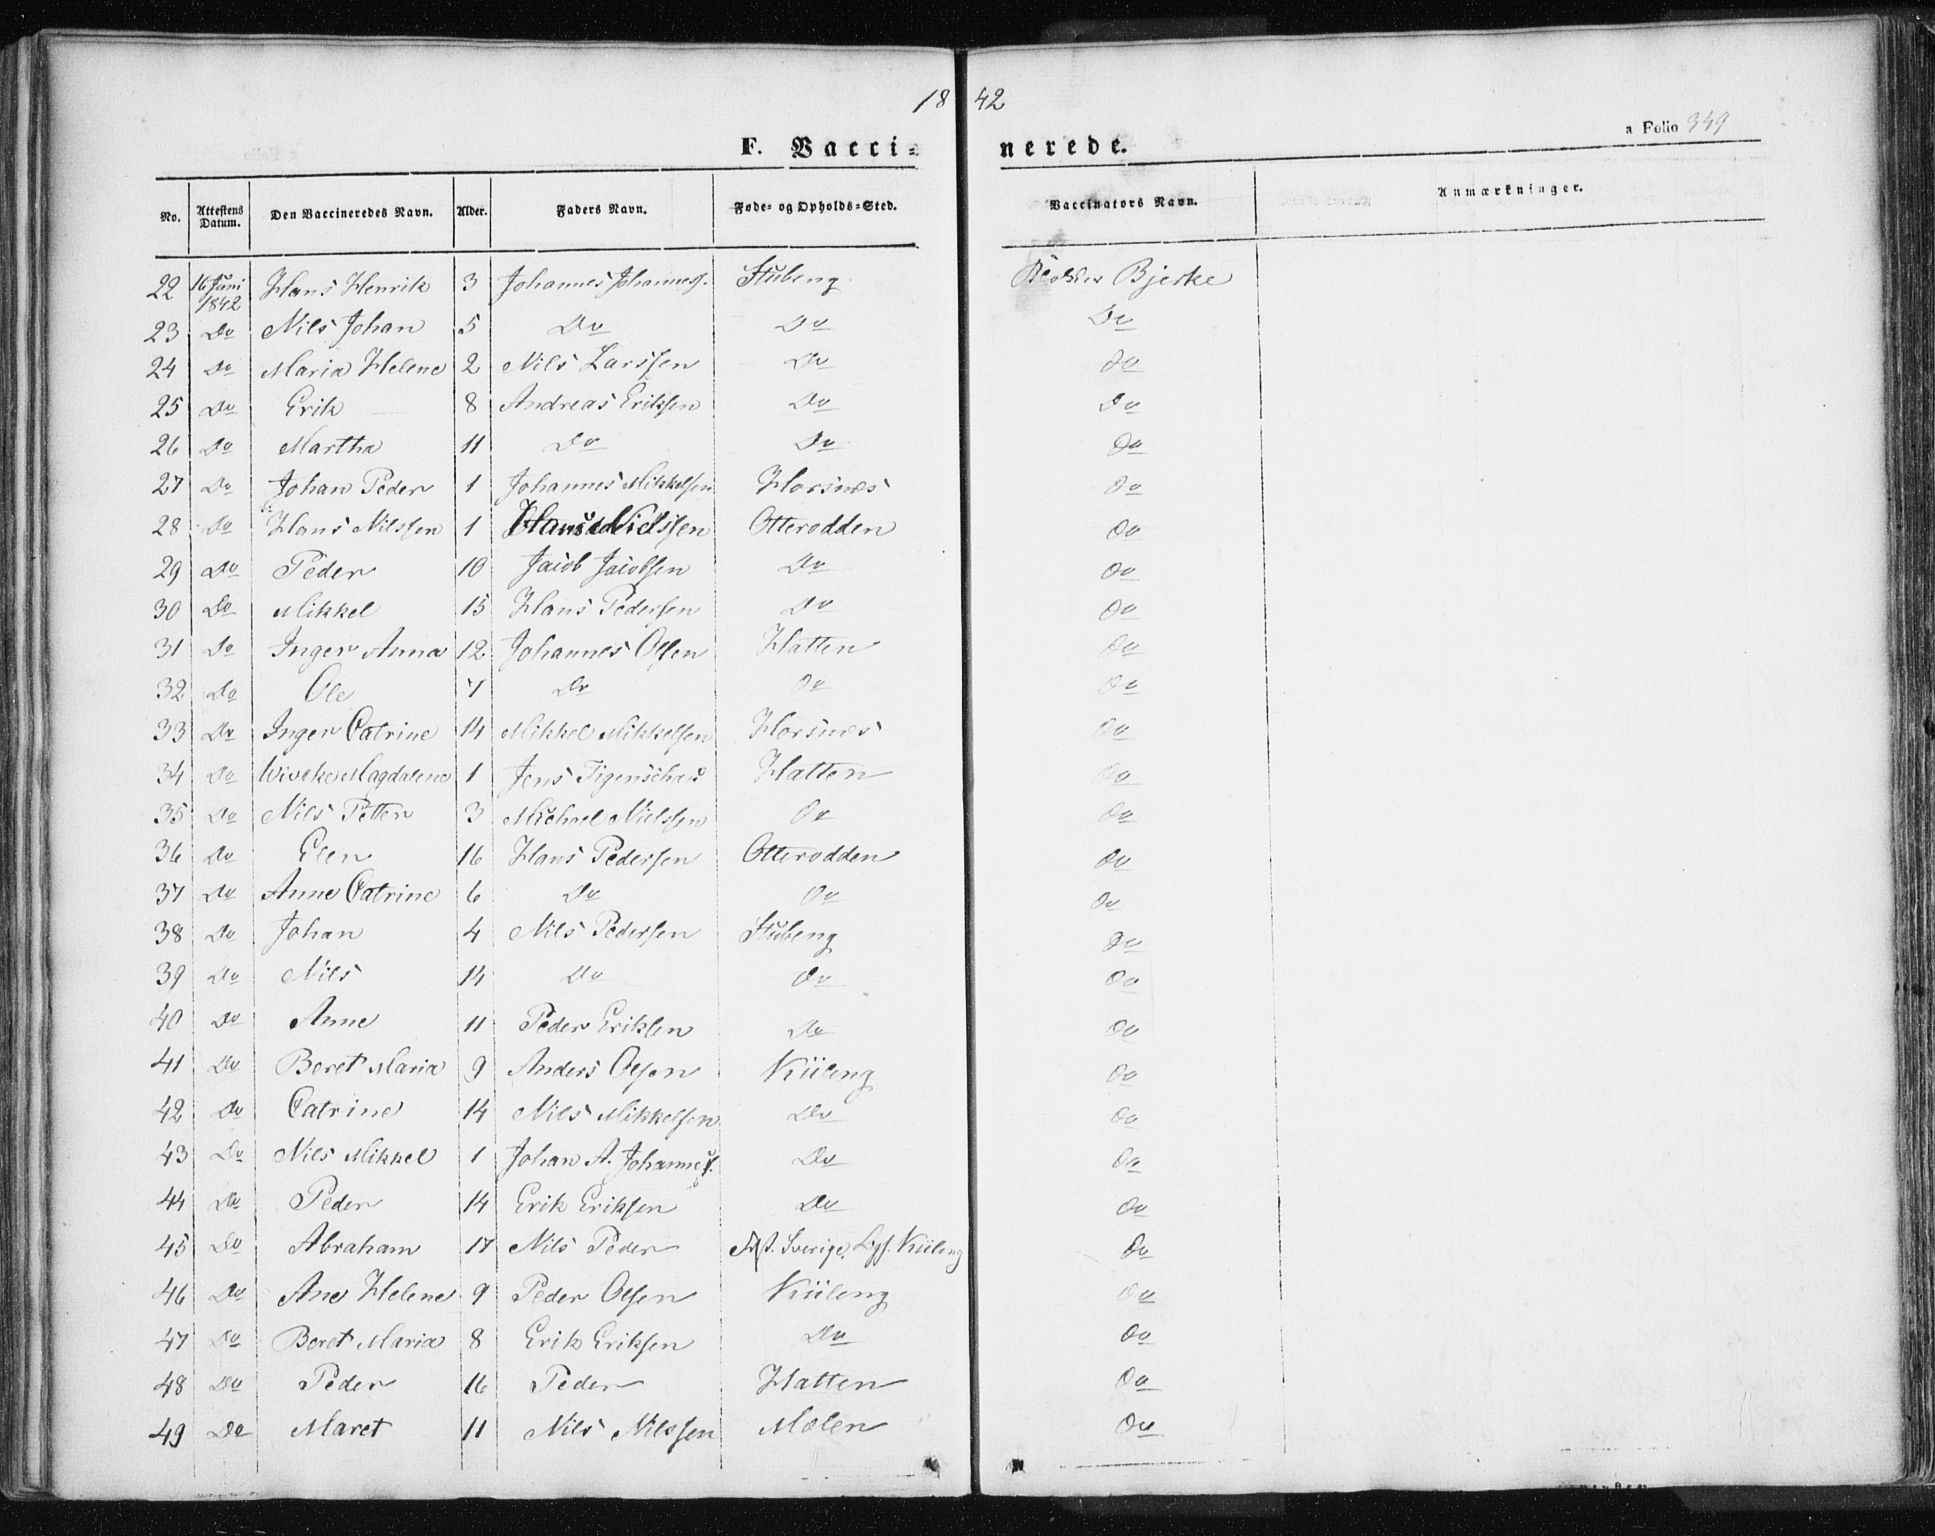 18 42
a Folio 349
F. Vacci= nerede.
No. Attestens Datum. Den Vaccineredes Navn. Alder. Faders Navn. Føde- og Opholds-Sted. Vaccinators Navn. Anmærkninger.
22 16 Juni 1842 Hans Henrik 3 Johannes Johannes. Stubeng Bjerke
23 Do Nils Johan 5 Do Do Do
24 Do Maria Helene 2 Nils Larssen Do Do
25 Do Erik 8 Andreas Eriksen Do Do
26 Do Martha 11 Do Do Do
27 Do Johan Peder 1 Johannes Mikkelsen Horsnes Do
28 Do Hans Nilssen 1 Hans Nielssen Otterodden Do
29 Do Peder 10 Jacob Jacobsen Do Do
30 Do Mikkel 15 Hans Pedersen Do Do
31 Do Inger Anna 12 Johannes Olsen Hatten Do
32 Do Ole 7 Do Do Do
33 Do Inger Catrine 14 Mikkel Mikkelsen Horsnes Do
34 Do Wiveke Magdalene 1 Jens Figenschau Hatten Do
35 Do Nils Petter 3 Michael Nielssen Do Do
36 Do Elen 16 Hans Pedersen Otterodden Do
37 Do Anne Catrine 6 Do Do Do
38 Do Johan 4 Nils Pedersen Stubeng Do
39 Do Nils 14 Do Do Do
40 Do Anne 11 Peder Eriksen Do Do
41 Do Beret Maria 9 Anders Olsen Kiileng Do
42 Do Catrine 14 Nils Mikkelsen Do Do
43 Do Nils Mikkel 1 Johan A. Johannes. Do Do
44 Do Peder 14 Erik Eriksen Do Do
45 Do Abraham 17 Nils Peder Sverige, Kiileng Do
46 Do Ane Helene 9 Peder Olsen Kiileng Do
47 Do Beret Maria 8 Erik Eriksen Do Do
48 Do Peder 16 Peder Hatten Do
49 Do Maret 11 Nils Nilssen Molen Do